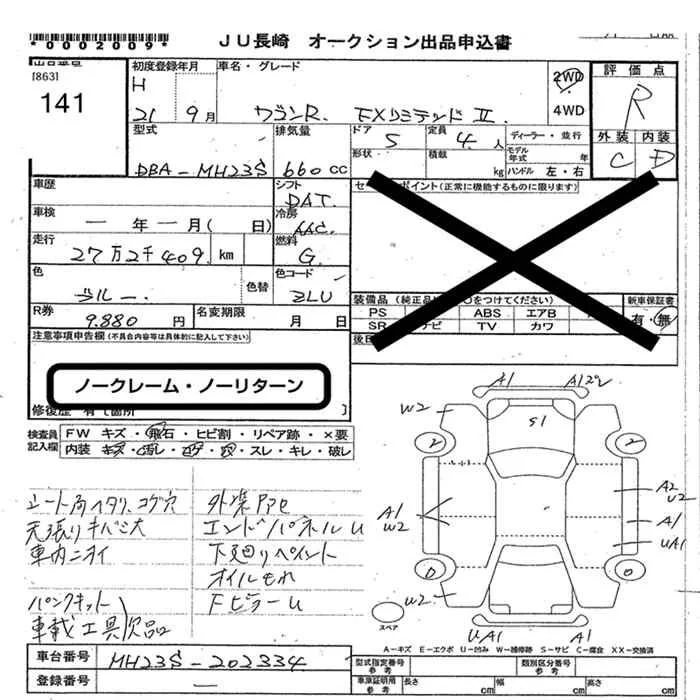 *0002009*
JU長崎 オークション出品申込書
出品番号
[863]
141
初度登録年月
H
21 9月
車名・グレード
ワゴンR FXリミテッドⅡ
2WD
4WD
評価点
R
外装 内装
C D
型式
DBA-MH23S
排気量
660cc
ドア
5
形状
定員
4人
積載
kg
ディーラー・並行
モデル年式 年
ハンドル 左・右
車歴
シフト
DAT
セールスポイント(正常に機能するものに限ります)
車検
ー年ー月(日)
冷房
AAC
走行
27万2千409 km
燃料
G
色
ブルー
色替
色コード
ZLU
R券
9.880 円
名変期限
月 日
装備品(純正品に○をつけてください)
PS ABS エアB
SR ナビ TV カワ
新車保証書
有・無
注意事項申告欄(不具合内容等は具体的に記入して下さい)
ノークレーム・ノーリターン
修復歴 有[箇所 ]
検査員記入欄
FW キズ・飛石・ヒビ割・リペア跡・×要
内装 キズ・汚レ・コゲ・穴・スレ・キレ・破レ
シート角ヘタリ、コゲ穴
天張りキバミ大
車内ニオイ
パンクキット
車載工具欠品
外装アアセ
エンドパネルU
下廻りペイント
オイルもれ
FピラーU
A1
A12レ
W2
S1
2
2
A1
W2
A2
U2
A1
UA1
D
0
W2
UA1
A1
スペア
A-キズ E-エクボ U-凹み W-補修跡 S-サビ C-腐食 XX-交換済
車台番号
MH23S-202334
登録番号
ー
型式指定番号
参考
類別区分番号
参考
車庫証明用
参考
長さ cm
幅 cm
高さ cm